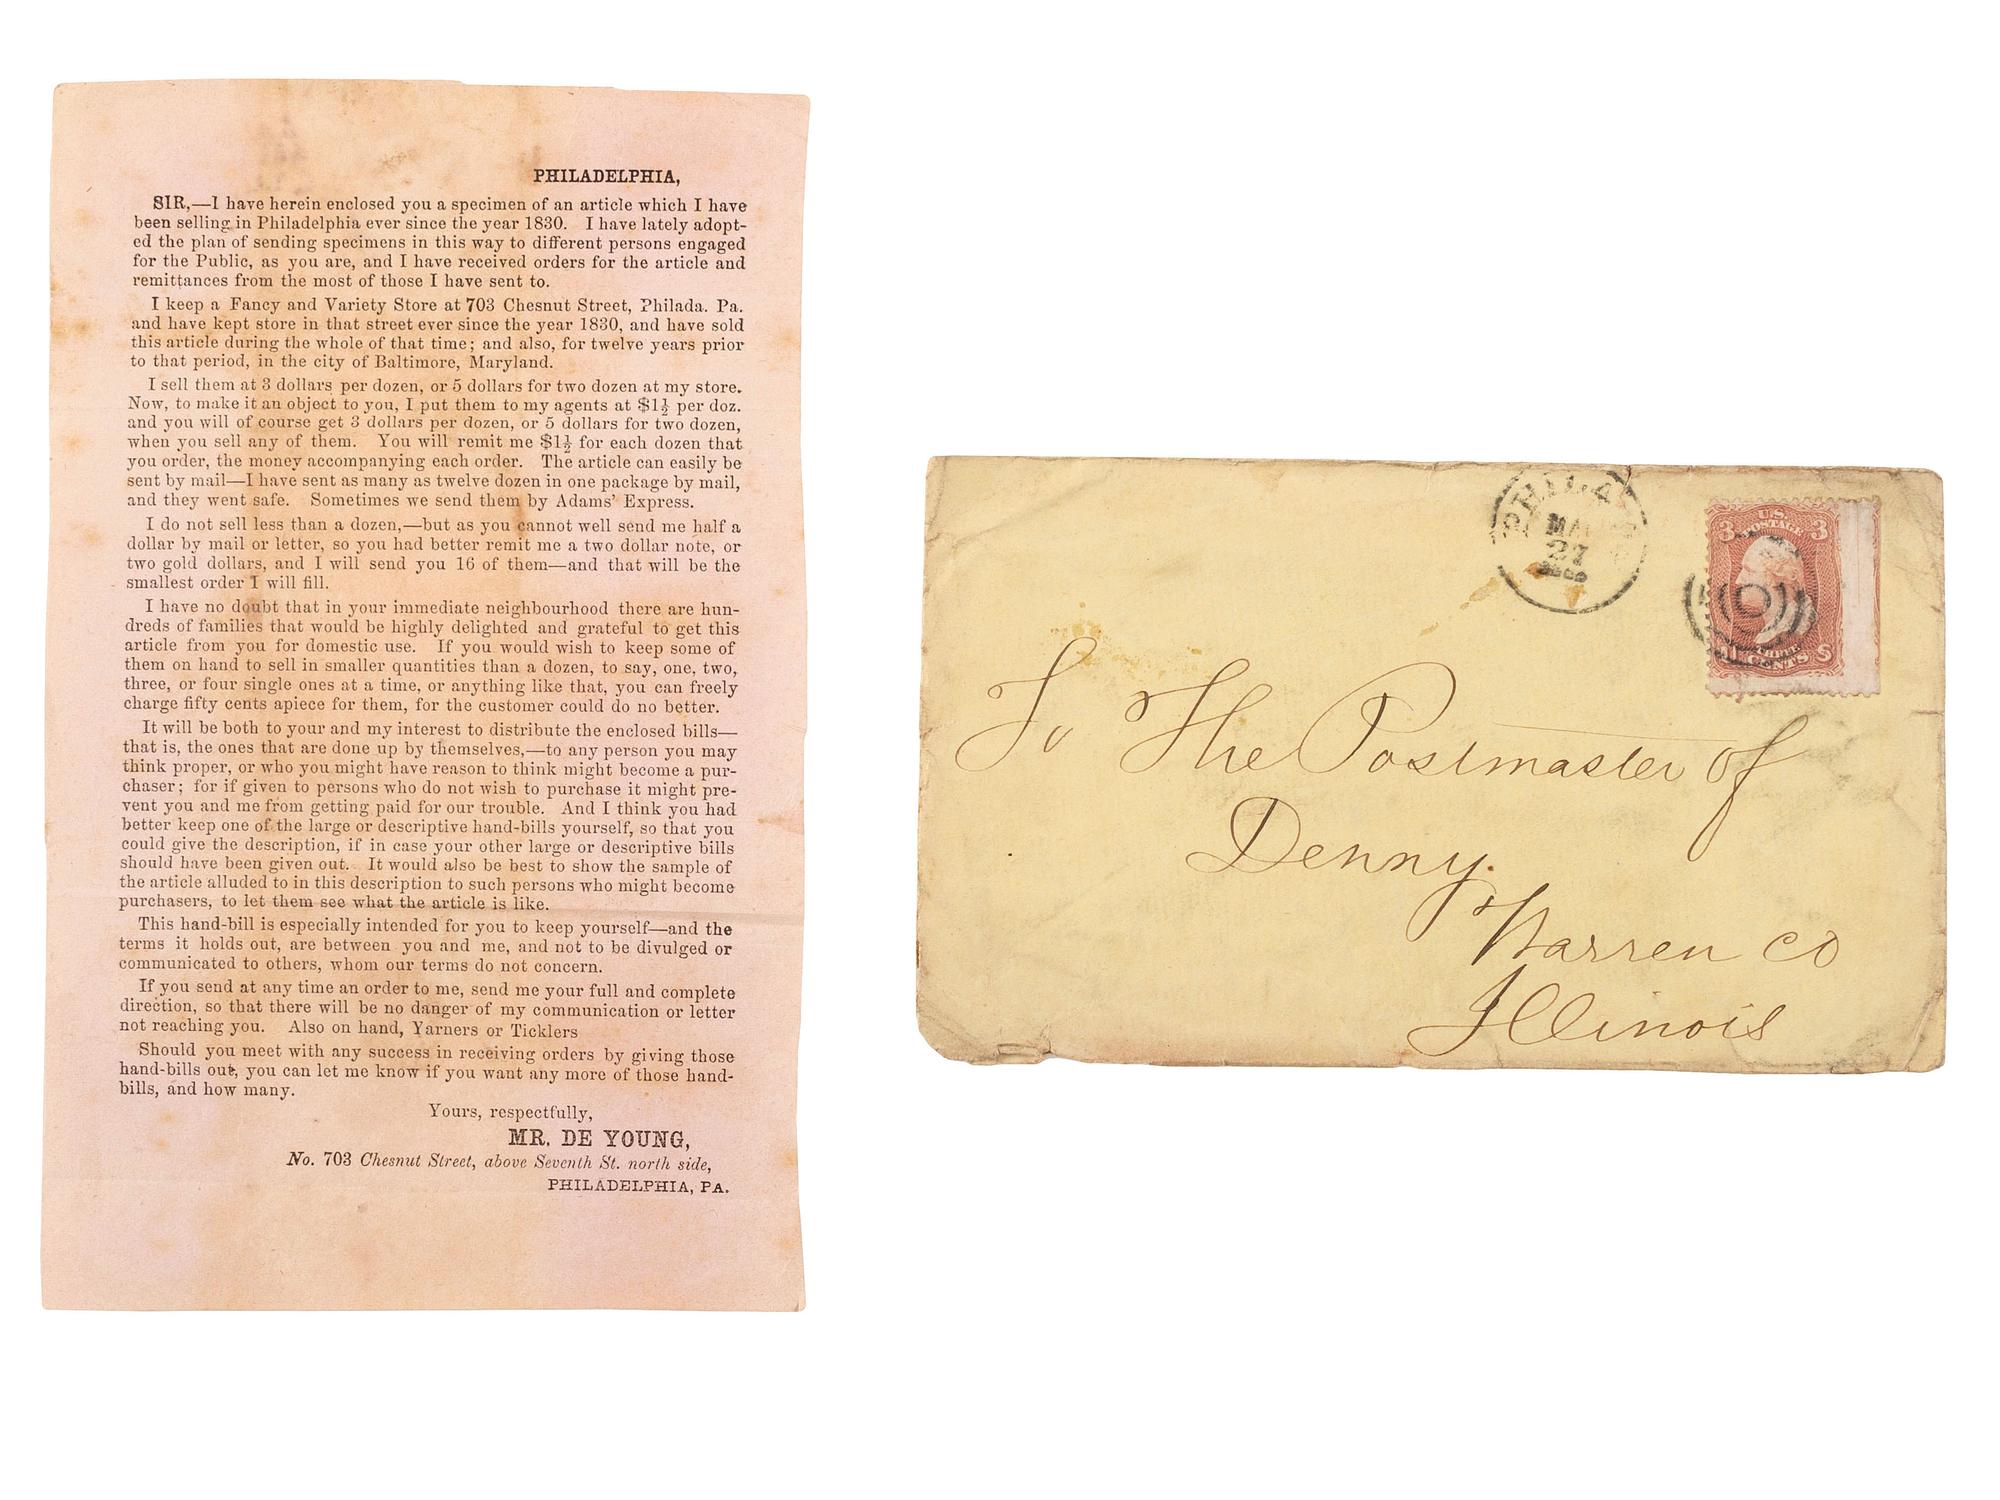 PHILADELPHIA,
SIR,—I have herein enclosed you a specimen of an article which I have
been selling in Philadelphia ever since the year 1830. I have lately adopt-
ed the plan of sending specimens in this way to different persons engaged
for the Public, as you are, and I have received orders for the article and
remittances from the most of those I have sent to.
I keep a Fancy and Variety Store at 703 Chesnut Street, Philada. Pa.
and have kept store in that street ever since the year 1830, and have sold
this article during the whole of that time; and also, for twelve years prior
to that period, in the city of Baltimore, Maryland.
I sell them at 3 dollars per dozen, or 5 dollars for two dozen at my store.
Now, to make it an object to you, I put them to my agents at $1½ per doz.
and you will of course get 3 dollars per dozen, or 5 dollars for two dozen,
when you sell any of them. You will remit me $1½ for each dozen that
you order, the money accompanying each order. The article can easily be
sent by mail—I have sent as many as twelve dozen in one package by mail,
and they went safe. Sometimes we send them by Adams' Express.
I do not sell less than a dozen,—but as you cannot well send me half a
dollar by mail or letter, so you had better remit me a two dollar note, or
two gold dollars, and I will send you 16 of them—and that will be the
smallest order I will fill.
I have no doubt that in your immediate neighbourhood there are hun-
dreds of families that would be highly delighted and grateful to get this
article from you for domestic use. If you would wish to keep some of
them on hand to sell in smaller quantities than a dozen, to say, one, two,
three, or four single ones at a time, or anything like that, you can freely
charge fifty cents apiece for them, for the customer could do no better.
It will be both to your and my interest to distribute the enclosed bills—
that is, the ones that are done up by themselves,—to any person you may
think proper, or who you might have reason to think might become a pur-
chaser; for if given to persons who do not wish to purchase it might pre-
vent you and me from getting paid for our trouble. And I think you had
better keep one of the large or descriptive hand-bills yourself, so that you
could give the description, if in case your other large or descriptive bills
should have been given out. It would also be best to show the sample of
the article alluded to in this description to such persons who might become
purchasers, to let them see what the article is like.
This hand-bill is especially intended for you to keep yourself—and the
terms it holds out, are between you and me, and not to be divulged or
communicated to others, whom our terms do not concern.
If you send at any time an order to me, send me your full and complete
direction, so that there will be no danger of my communication or letter
not reaching you. Also on hand, Yarners or Ticklers
Should you meet with any success in receiving orders by giving those
hand-bills out, you can let me know if you want any more of those hand-
bills, and how many.
Yours, respectfully,
MR. DE YOUNG,
No. 703 Chesnut Street, above Seventh St. north side,
PHILADELPHIA, PA.
27
3 U.S. 3
POSTAGE
CENTS
To The Postmaster of
Denny.
Warren co
Illinois